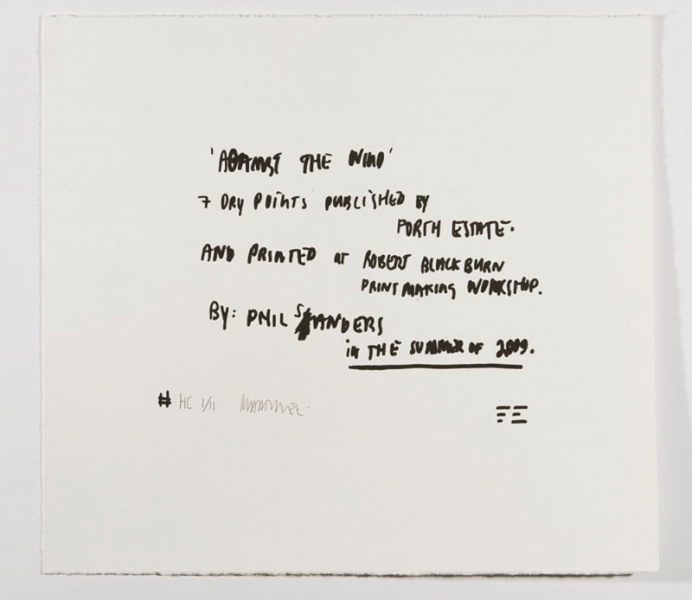 'AGAINST THE WIND'
7 DRY POINTS PUBLISHED BY
FORTH ESTATE.
AND PRINTED AT ROBERT BLACKBURN
PRINTMAKING WORKSHOP.
BY: PHIL SANDERS
in THE SUMMER OF 2009.
# HC 1/1
FE